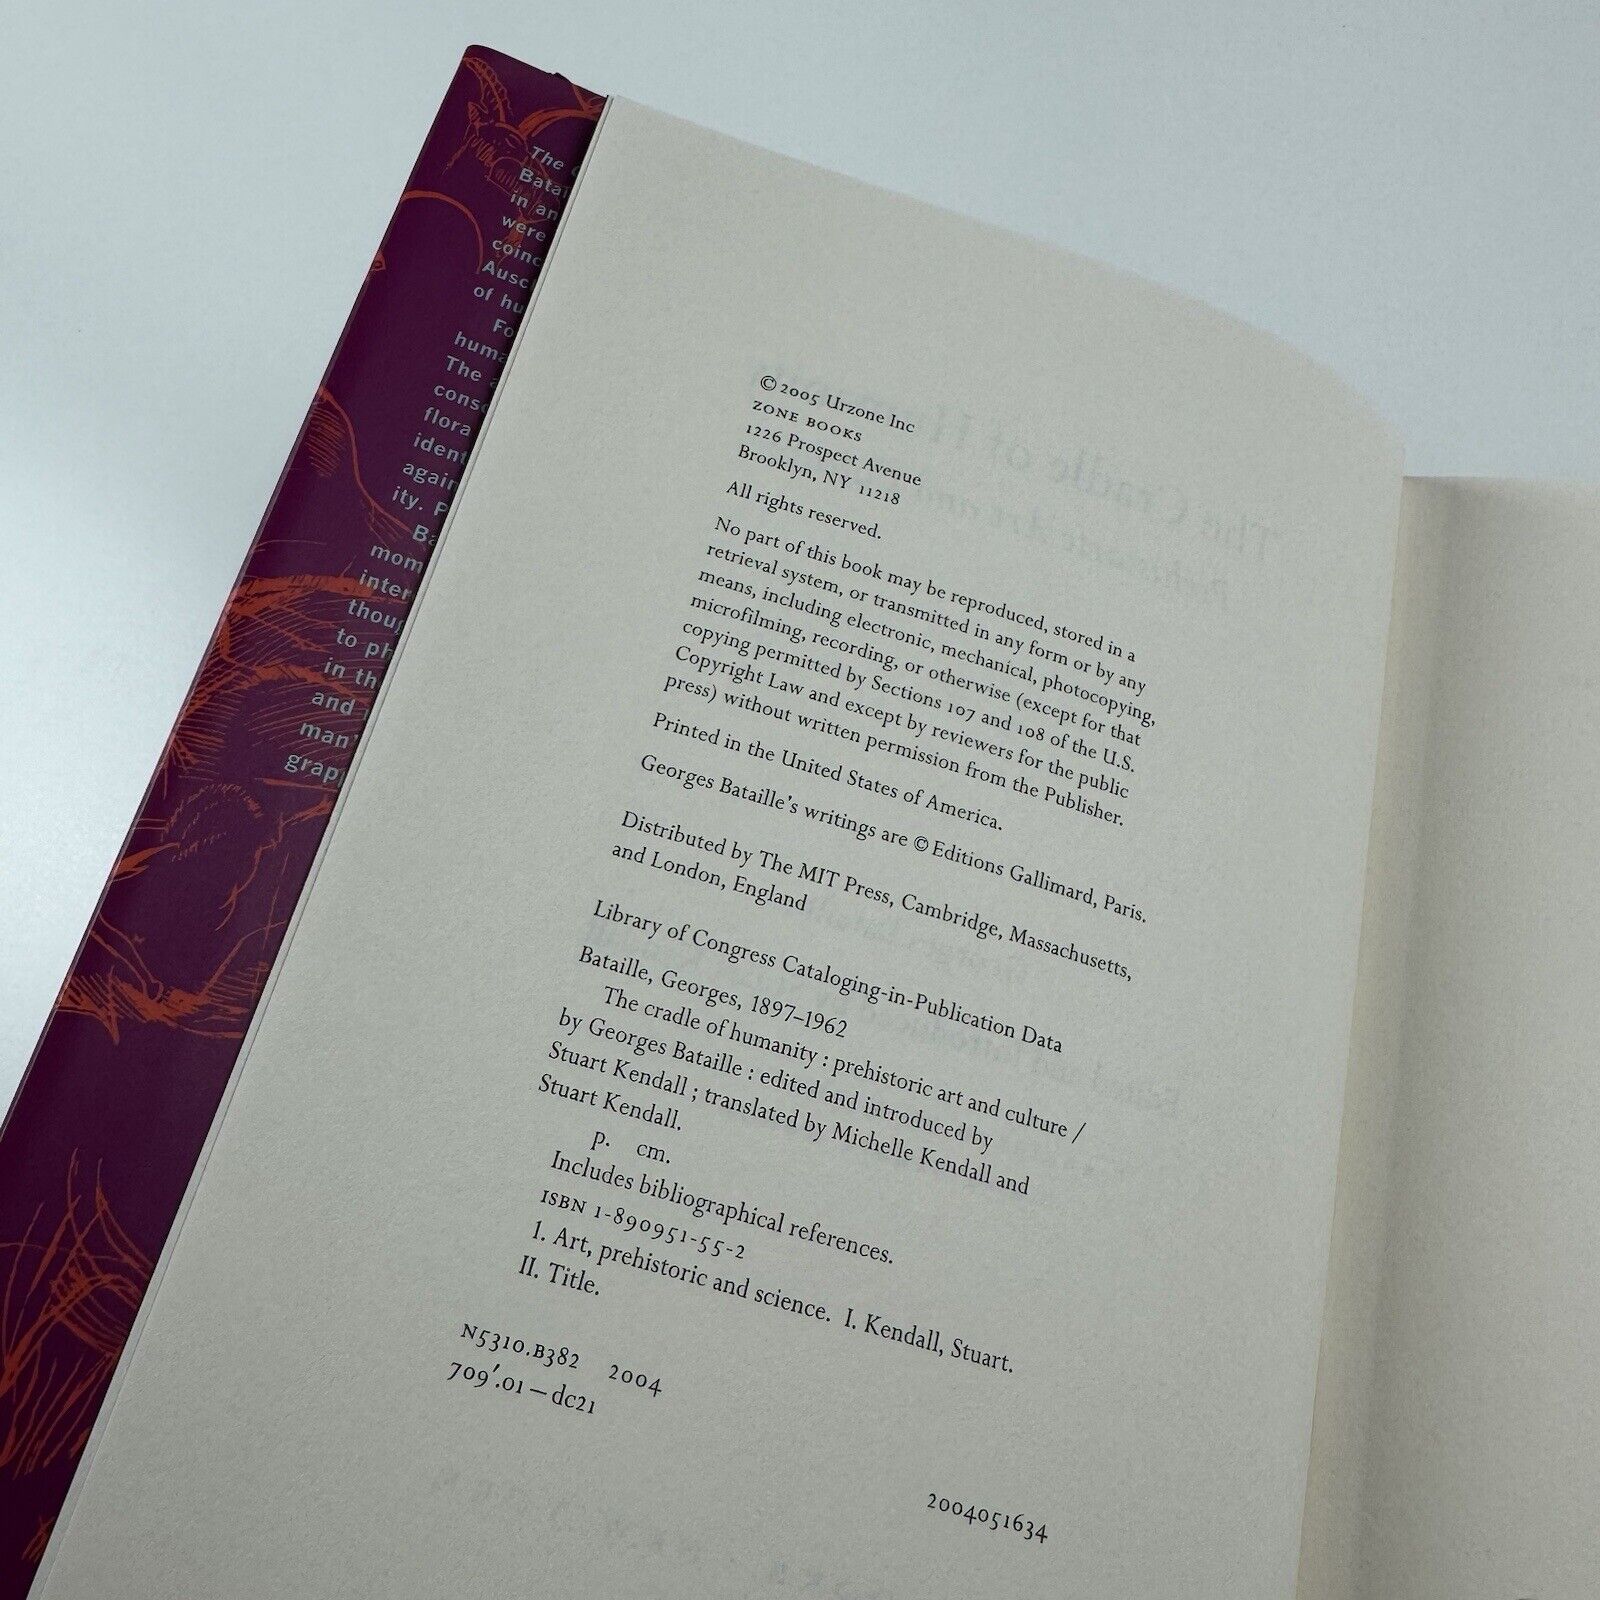 The
Batai
in an
were
coinc
Ausc
of hu
Fo
huma
The a
consc
flora
ident
again
ity. P
Ba
mom
inter
thoug
to ph
in th
and
man'
grap
© 2005 Urzone Inc
ZONE BOOKS
1226 Prospect Avenue
Brooklyn, NY 11218
All rights reserved.
No part of this book may be reproduced, stored in a
retrieval system, or transmitted in any form or by any
means, including electronic, mechanical, photocopying,
microfilming, recording, or otherwise (except for that
copying permitted by Sections 107 and 108 of the U.S.
Copyright Law and except by reviewers for the public
press) without written permission from the Publisher.
Printed in the United States of America.
Georges Bataille's writings are © Editions Gallimard, Paris.
Distributed by The MIT Press, Cambridge, Massachusetts,
and London, England
Library of Congress Cataloging-in-Publication Data
Bataille, Georges, 1897–1962
The cradle of humanity : prehistoric art and culture /
by Georges Bataille : edited and introduced by
Stuart Kendall ; translated by Michelle Kendall and
Stuart Kendall.
p. cm.
Includes bibliographical references.
ISBN 1-890951-55-2
1. Art, prehistoric and science. I. Kendall, Stuart.
II. Title.
N5310.B382 2004
709'.01 – dc21
2004051634